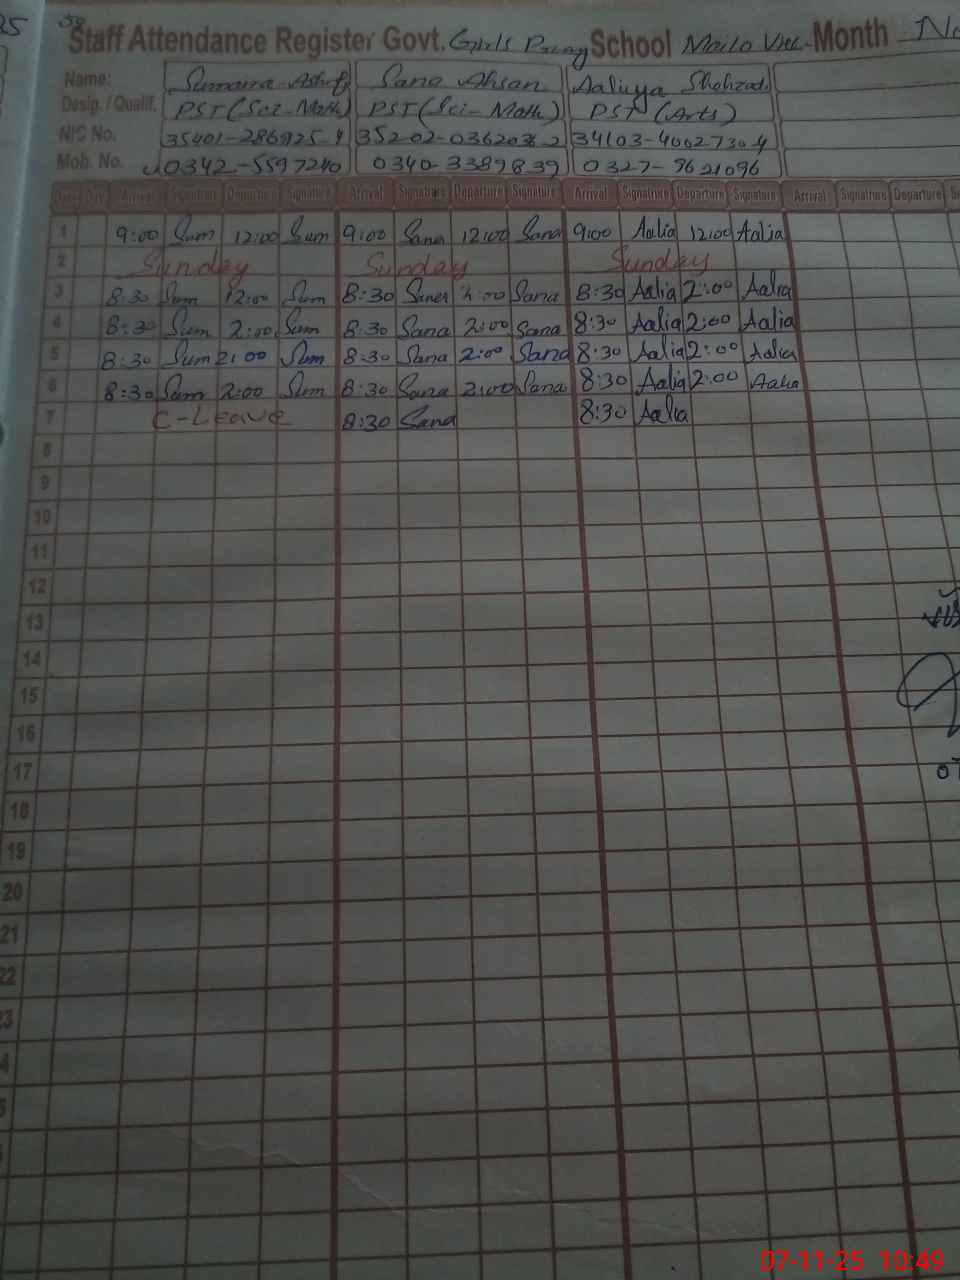 Staff Attendance Register Govt. Girls School Month
Name: Sumara Ashraf Sana Ahsan Aaliuya Shehzadi
Desig. / Qualif. PST (Sci-Math) PST (Sci-Math) PST (Arts)
NIC No. 34103-4002730-4
Mob. No. 0342-5597240 0340 3389839 0327-9621096
Arrival Signature Departure Signature Arrival Signature Departure Signature Arrival Signature Departure Signature Arrival Signature Departure
1 9:00 Sum 12:00 Sum 9:00 Sana 12:00 Sana 9:00 Aalia 12:00 Aalia
2 Sunday Sunday Sunday
3 8:30 Sum Sum 8:30 Sana Sana 8:30 Aalia 2:00 Aalia
4 8:30 Sum 2:00 Sum 8:30 Sana 2:00 Sana 8:30 Aalia 2:00 Aalia
5 8:30 Sum 2:00 Sum 8:30 Sana 2:00 Sana 8:30 Aalia 2:00 Aalia
6 8:30 Sum 2:00 Sum 8:30 Sana 2:00 Sana 8:30 Aalia 2:00 Aalia
7 C-Leave 8:30 Sana 8:30 Aalia
8
9
10
11
12
13
14
15
16
17
18
19
20
21
22
23
07-11-25 10:49